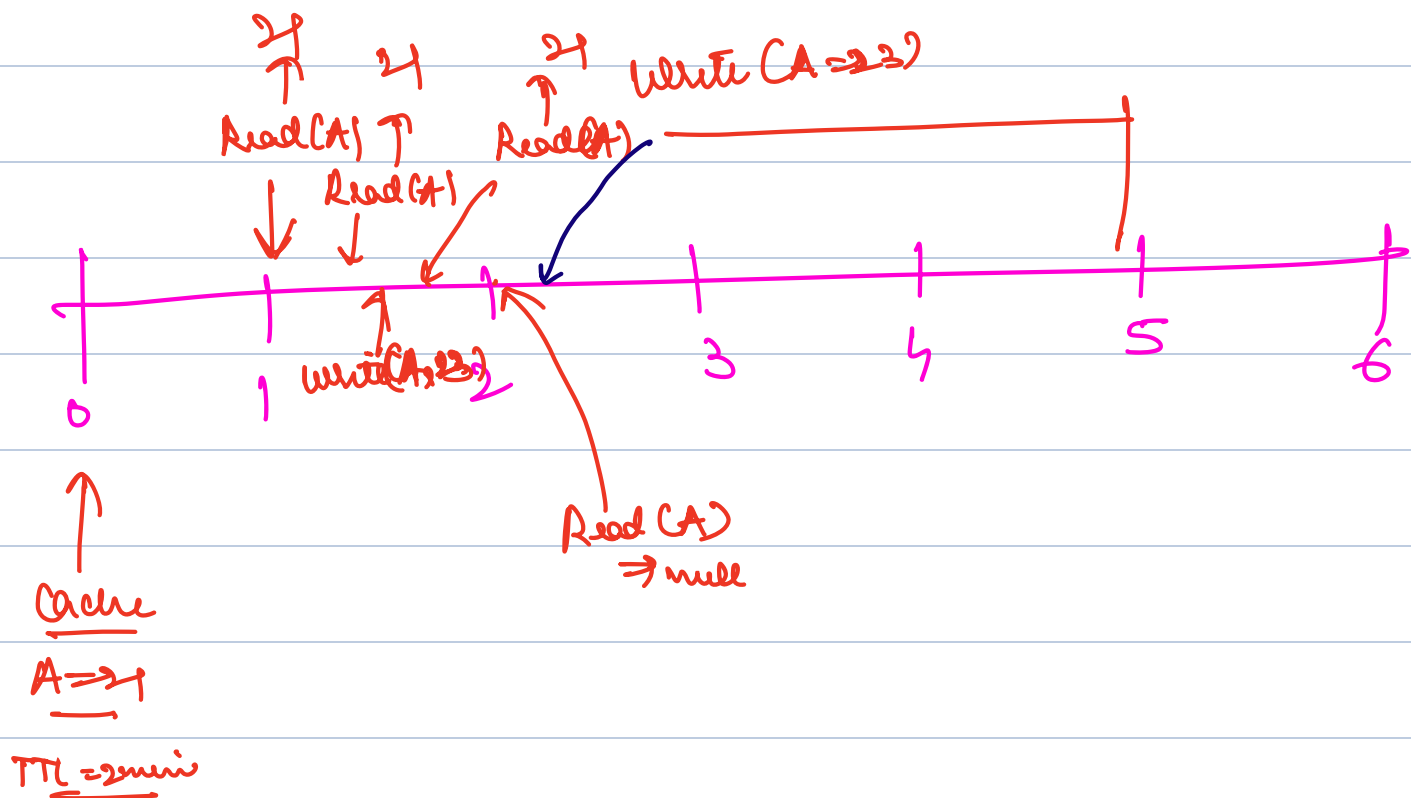 21
21
21
Write (A=>23)
Read(A)
Read(A)
Read(A)
Write(A,23)
0
1
2
3
4
5
6
Read (A)
=> null
Cache
A=>21
TTL =2min